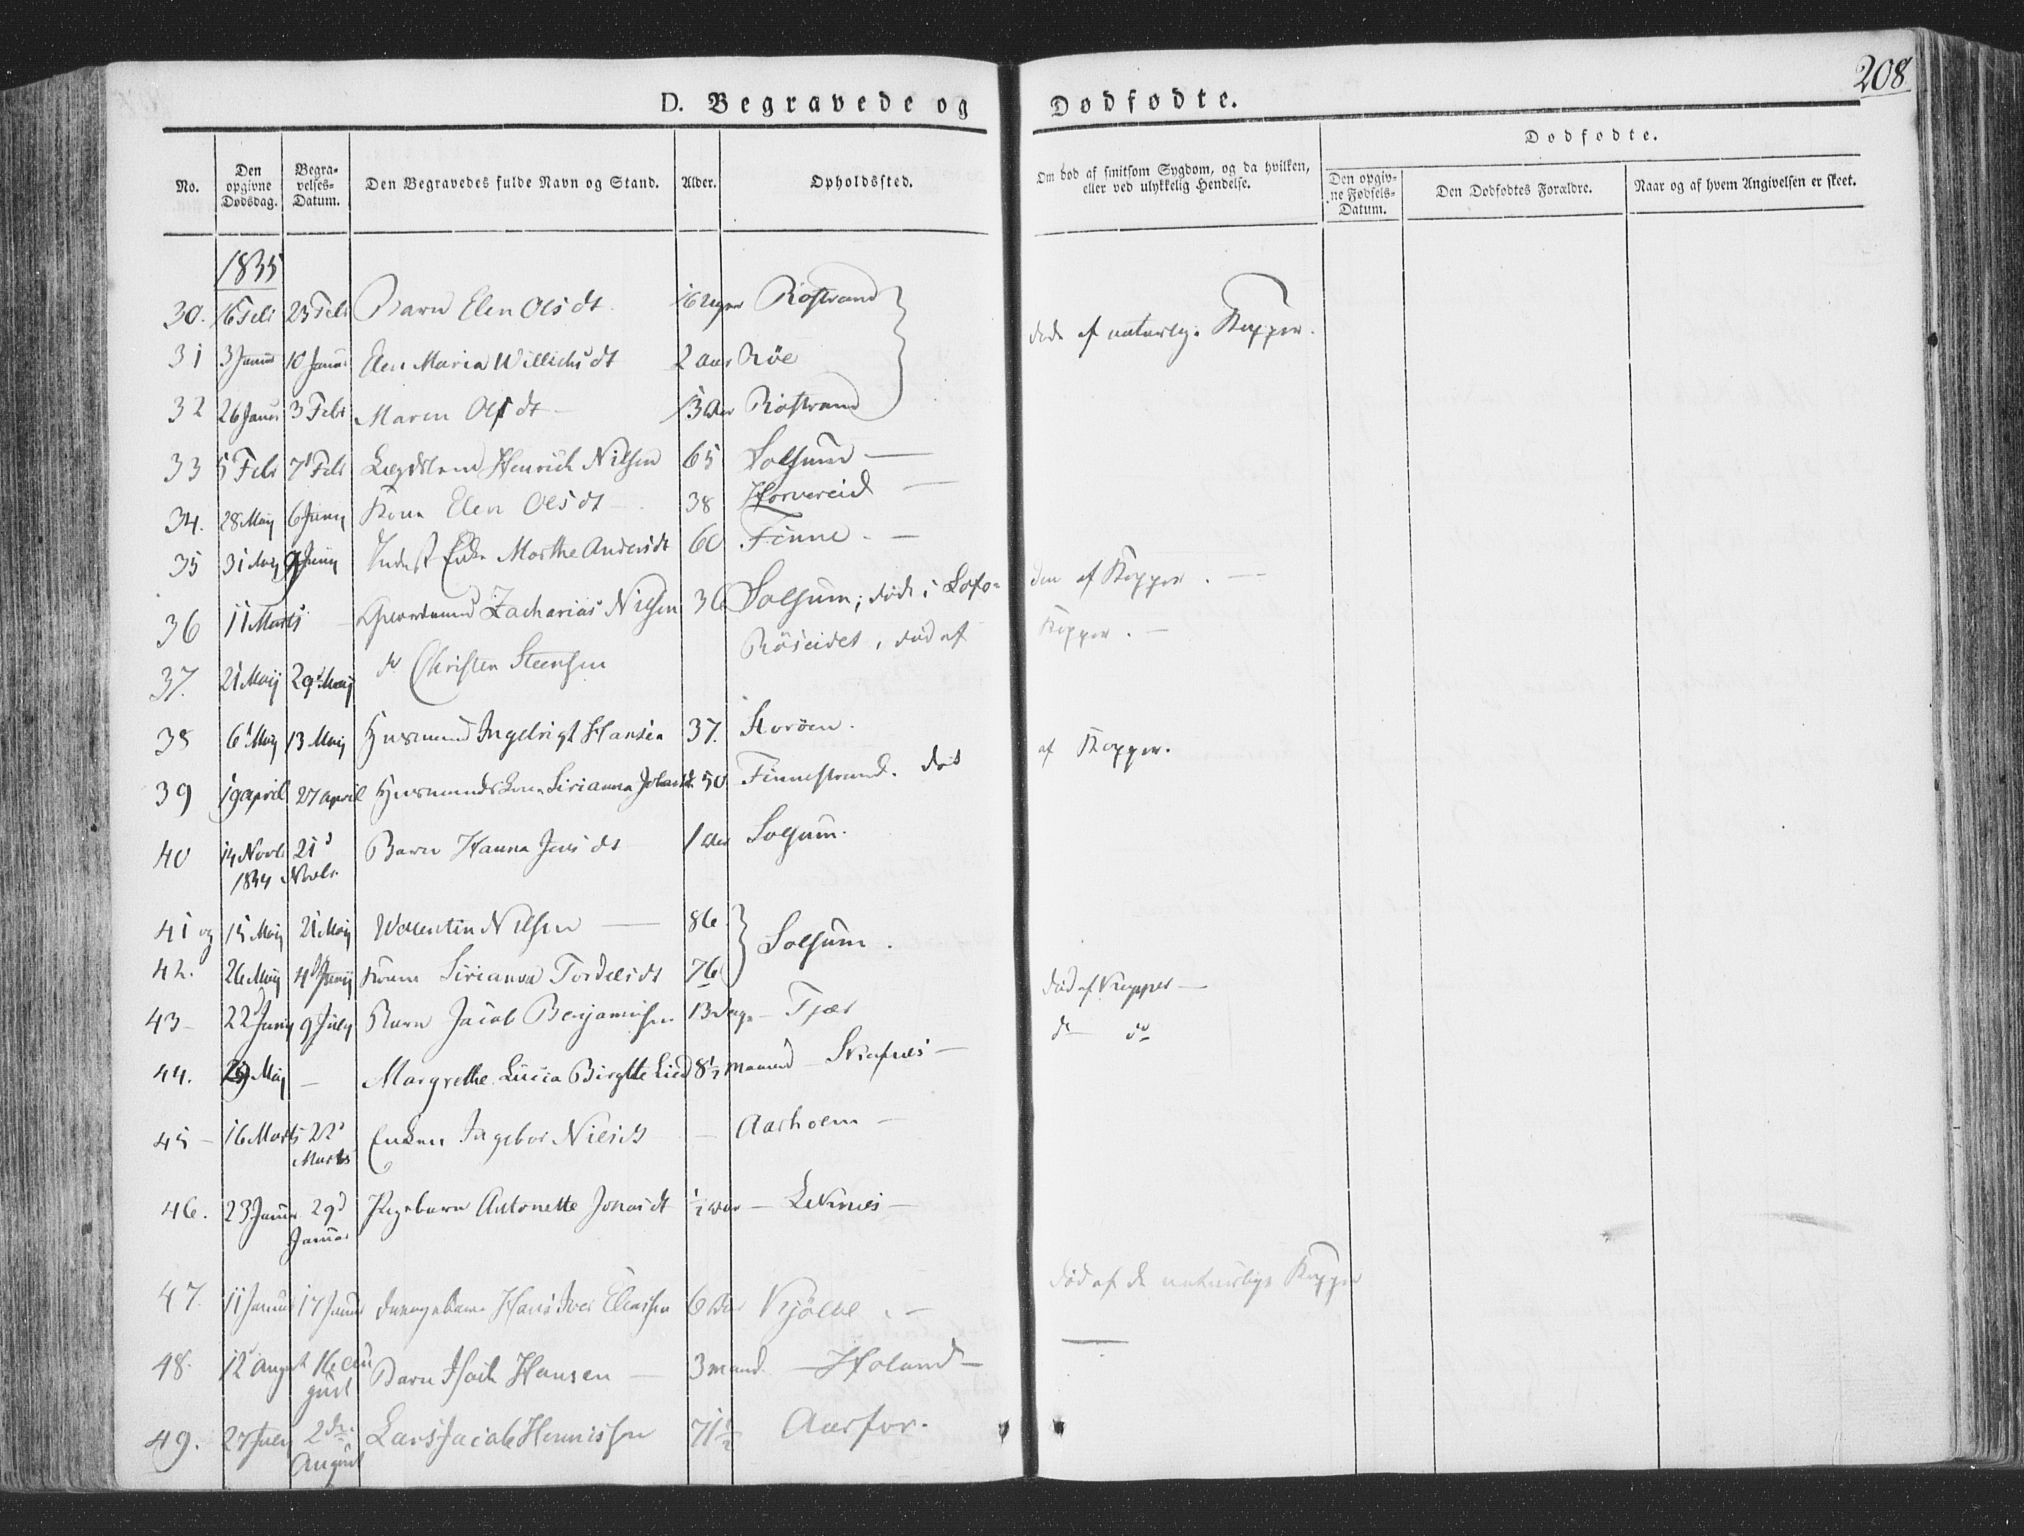 208
D. Begravede og Dødfødte.
No.
Den opgivne Dødsdag.
Begravelses-Datum.
Den Begravedes fulde Navn og Stand.
Alder.
Opholdssted.
Om død af smitsom Sygdom, og da hvilken, eller ved ulykkelig Hendelse.
Dødfødte.
Den opgivne Fødsels-Datum.
Den Dødfødtes Forældre.
Naar og af hvem Angivelsen er skeet.
1835
30. 16 Feb 23 Feb Barn Elen Olsdt 16 Uger Røstrand
død af naturlige Kopper.
31 3 Janu 10 Janu Elen Maria Willichsdt 2 aar Røe
32 26 Janu 3 Feb Maren Olsdt 13 Aar Røstrand
33 5 Feb 7d Feb Lægdslem Henrich Nilsen 65 Solsum
34. 28 Maij 6 Junij Kone Elen Olsdt 38 Horvereid
35 31 Maij Junij Inderst Enke Marthe Andersdt 60 Finne
36 11 Marts Zacharias Nilsen 36 Solsum; døde i Lofo-
den af Kopper.
37. 21 Maij 29d Maij do Christen Steensen Røseidet, død af
Kopper.
38 6d Maij 13 Maij Huusmand Ingebrigt Hansen 37. Storøen.
39 19 april 27 april Huusmandskone Sirianna 50 Finnestrand. død
af Kopper.
40 14 Novb 1834 21d Novbr. Barn Hanna Jensdt 1 Aar Solsum.
41 og 15 Maij 21 Maij Walentin Nilsen 86 Solsum.
42. 26 Maij 4d Junij Kone Sirianna Tordelsdt 76
43 22 Junij 9 July Barn Jacob Benjaminsen 13 Dage Fjær
død af Kopper
44. 29 Maij Margrethe Lucia Birgitte Lied 8½ Maaned
do do
45 16 Marts 22d Marts Enken Ingebor Nilsdt Aarholm
46. 23 Janur 29d Januar Pigebarn Antonette Jonasdt ½ Aar Leknes
47. 11 Januar 17 Janur Drengebarn Hans Iver Eliassen 6 Aar Kjølle
død af de naturlige Kopper
48. 12 august 16 august Barn Isach Hansen 3 maand. Høland
49. 27 July 2den August Lars Jacob Henrissen 71½ Aarfor.